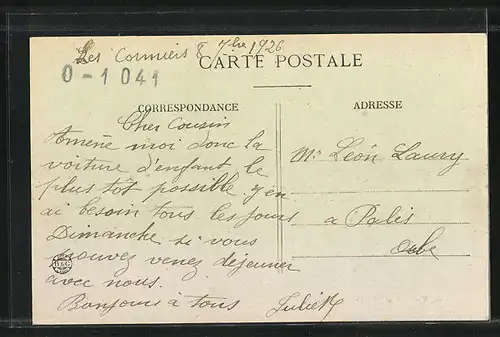 Les Cormiers 8 7bre 1926
CARTE POSTALE
0-1041
CORRESPONDANCE
ADRESSE
Cher Cousin
Amène moi donc la
voiture d'enfant le
plus tôt possible. j'en
ai besoin tous les jours
Dimanche si vous
pouvez venez déjeuner
avec nous.
Bonjours à tous
Mr Léon Laury
a Palis
Aube